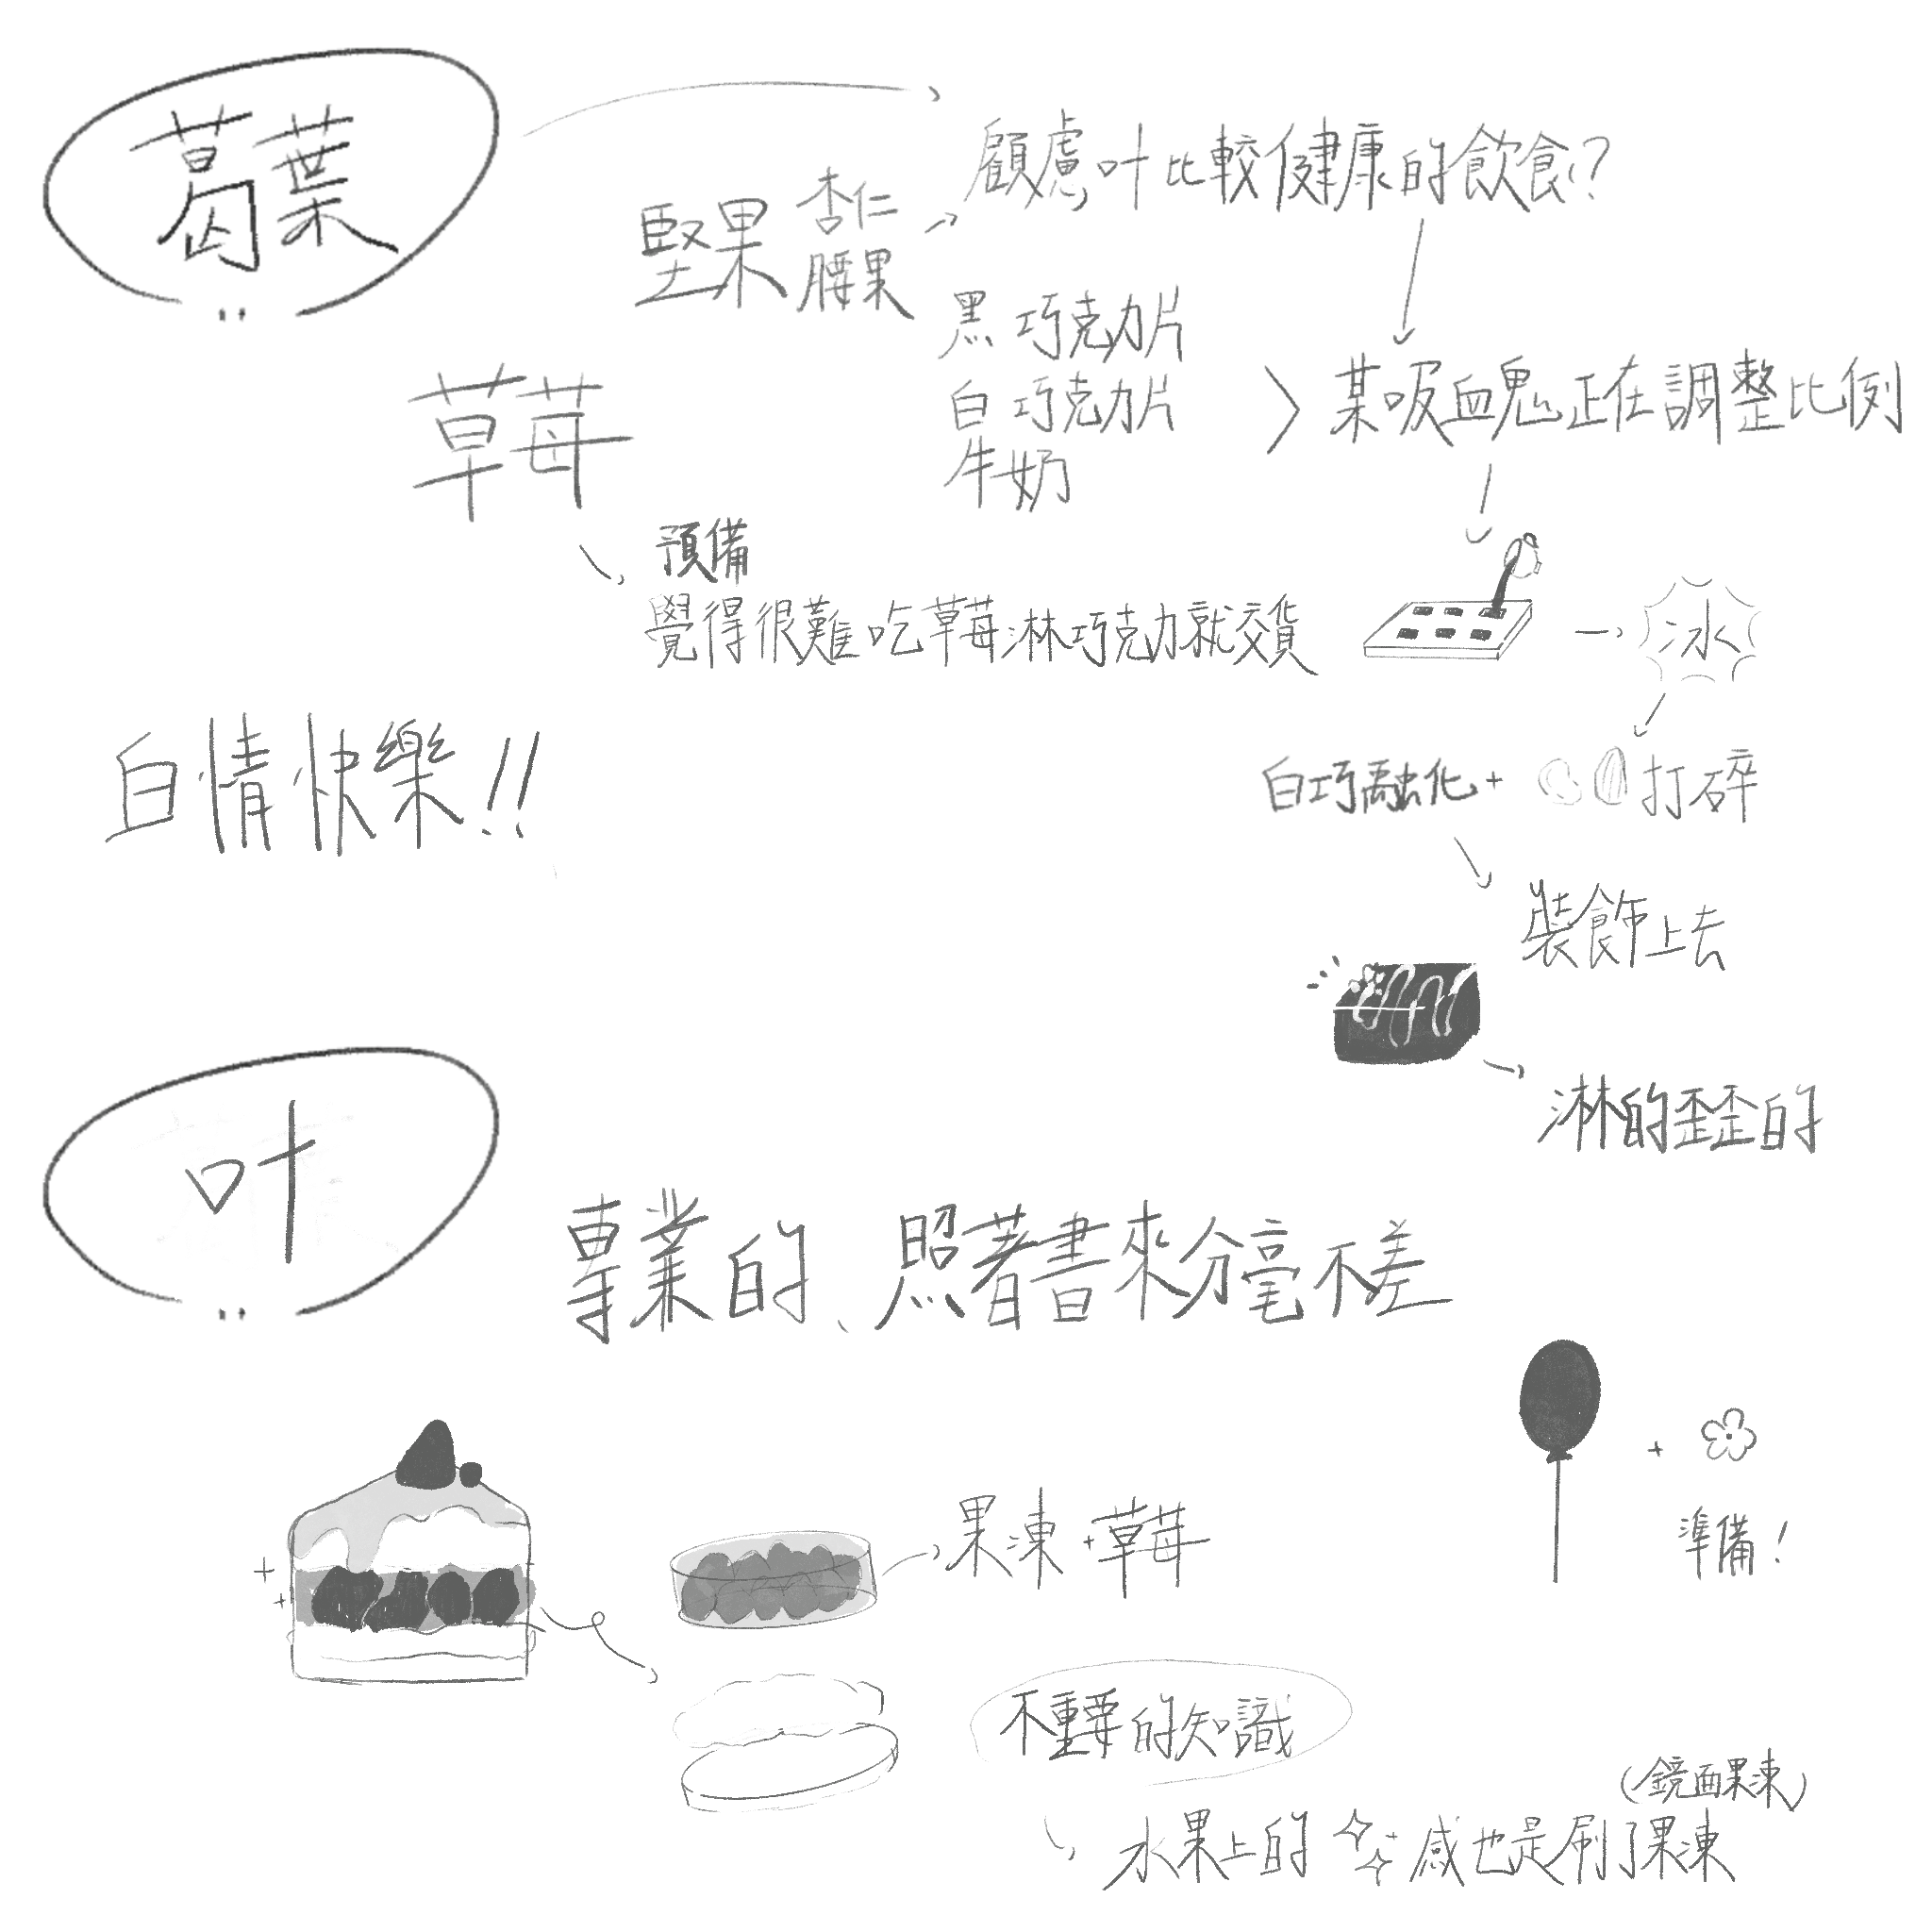 葛葉
顧慮叶比較健康的飲食!?
堅果
杏仁
腰果
黑巧克力片
白巧克力片
牛奶
某吸血鬼正在調整比例
草莓
預備
覺得很難吃草莓淋巧克力就交貨
冰
白情快樂!!
白巧融化+
打碎
裝飾上去
淋的歪歪的
叶
專業的、照著書來分毫不差
+
準備!
果凍+草莓
不重要的知識
(鏡面果凍)
水果上的
感也是刷了果凍